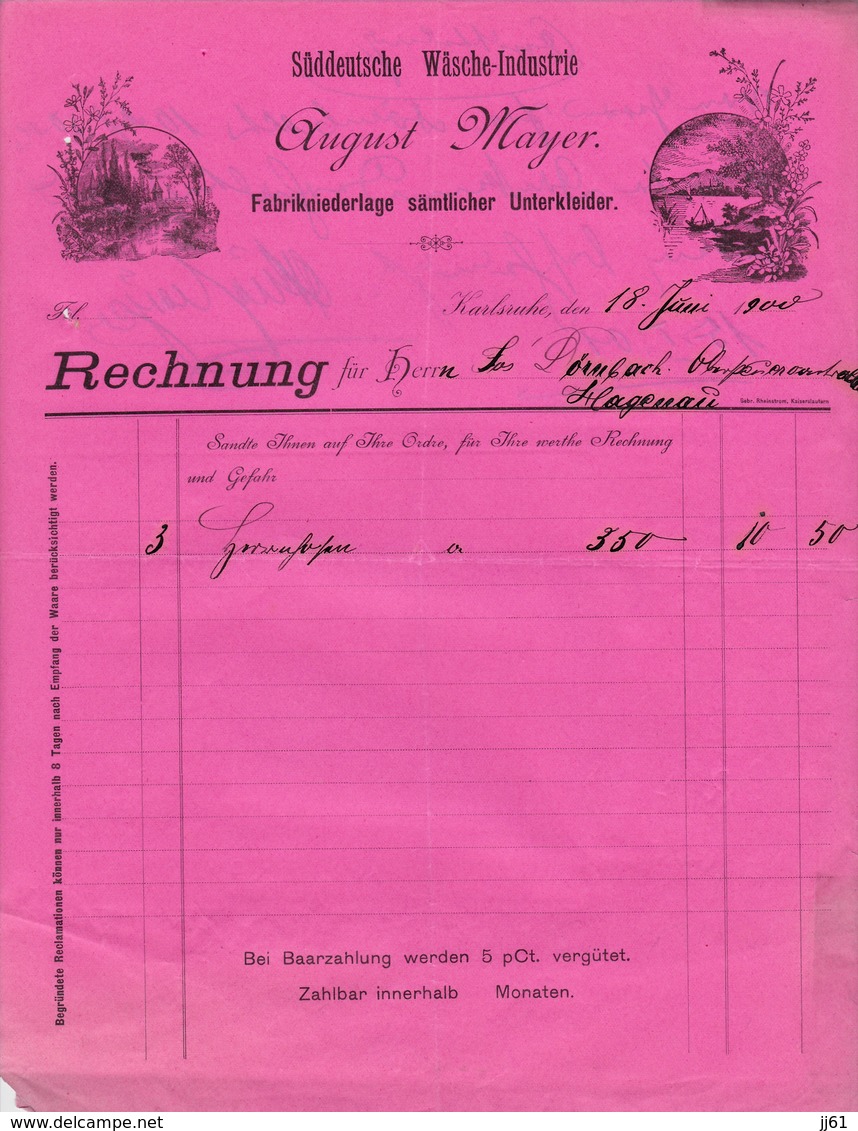 Süddeutsche Wäsche-Industrie
August Mayer.
Fabrikniederlage sämtlicher Unterkleider.
Karlsruhe, den 18. Juni 1900
Rechnung für Herrn Jos Dörnbach.
Hagenau
Gebr. Rheinstrom, Kaiserslautern
Sandte Ihnen auf Ihre Ordre, für Ihre werthe Rechnung
und Gefahr
3 Herrnhosen a 350 10 50
Begründete Reclamationen können nur innerhalb 8 Tagen nach Empfang der Waare berücksichtigt werden.
Bei Baarzahlung werden 5 pCt. vergütet.
Zahlbar innerhalb Monaten.
jj61